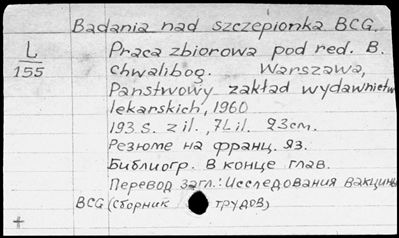 Badania nad szczepionka BCG.
L
155
Praca zbiorowa pod red. B.
Chwalibog. Warszawa,
Państwowy zakład wydawnictw
lekarskich, 1960
193 s. z il., 7L il. 23cm.
Резюме на франц. яз.
Библиогр. в конце глав.
Перевод загл.: Исследования вакцины
BCG (сборник трудов)
+